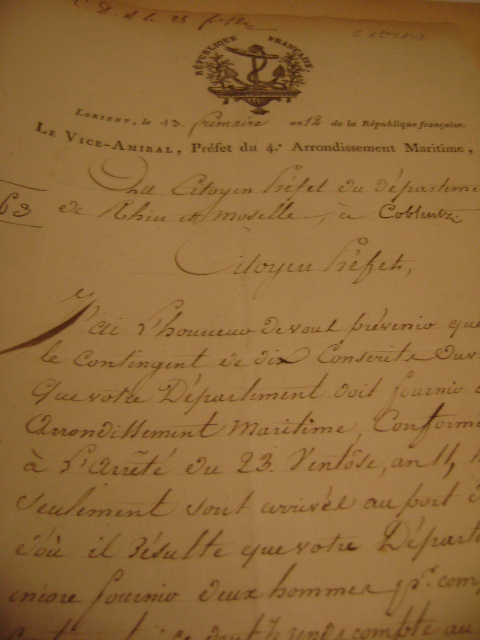 RÉPUBLIQUE FRANÇAISE.
LORIENT, le 13. frimaire an 12 de la République française.
LE VICE-AMIRAL, Préfet du 4.e Arrondissement Maritime,
Au Citoyen Préfet du départeme
63
de Rhin et moselle, à Coblentz.
Citoyen Préfet,
J'ai l'honneur de vous prévenir que
le Contingent de dix Conscrits Ouv
que votre Département doit fournir
Arrondissement Maritime, Conformé
à l'Arrêté du 23. Ventôse, an 11,
seulement sont arrivés au port
d'où il résulte que votre Départe
encore fournir deux hommes pr. com